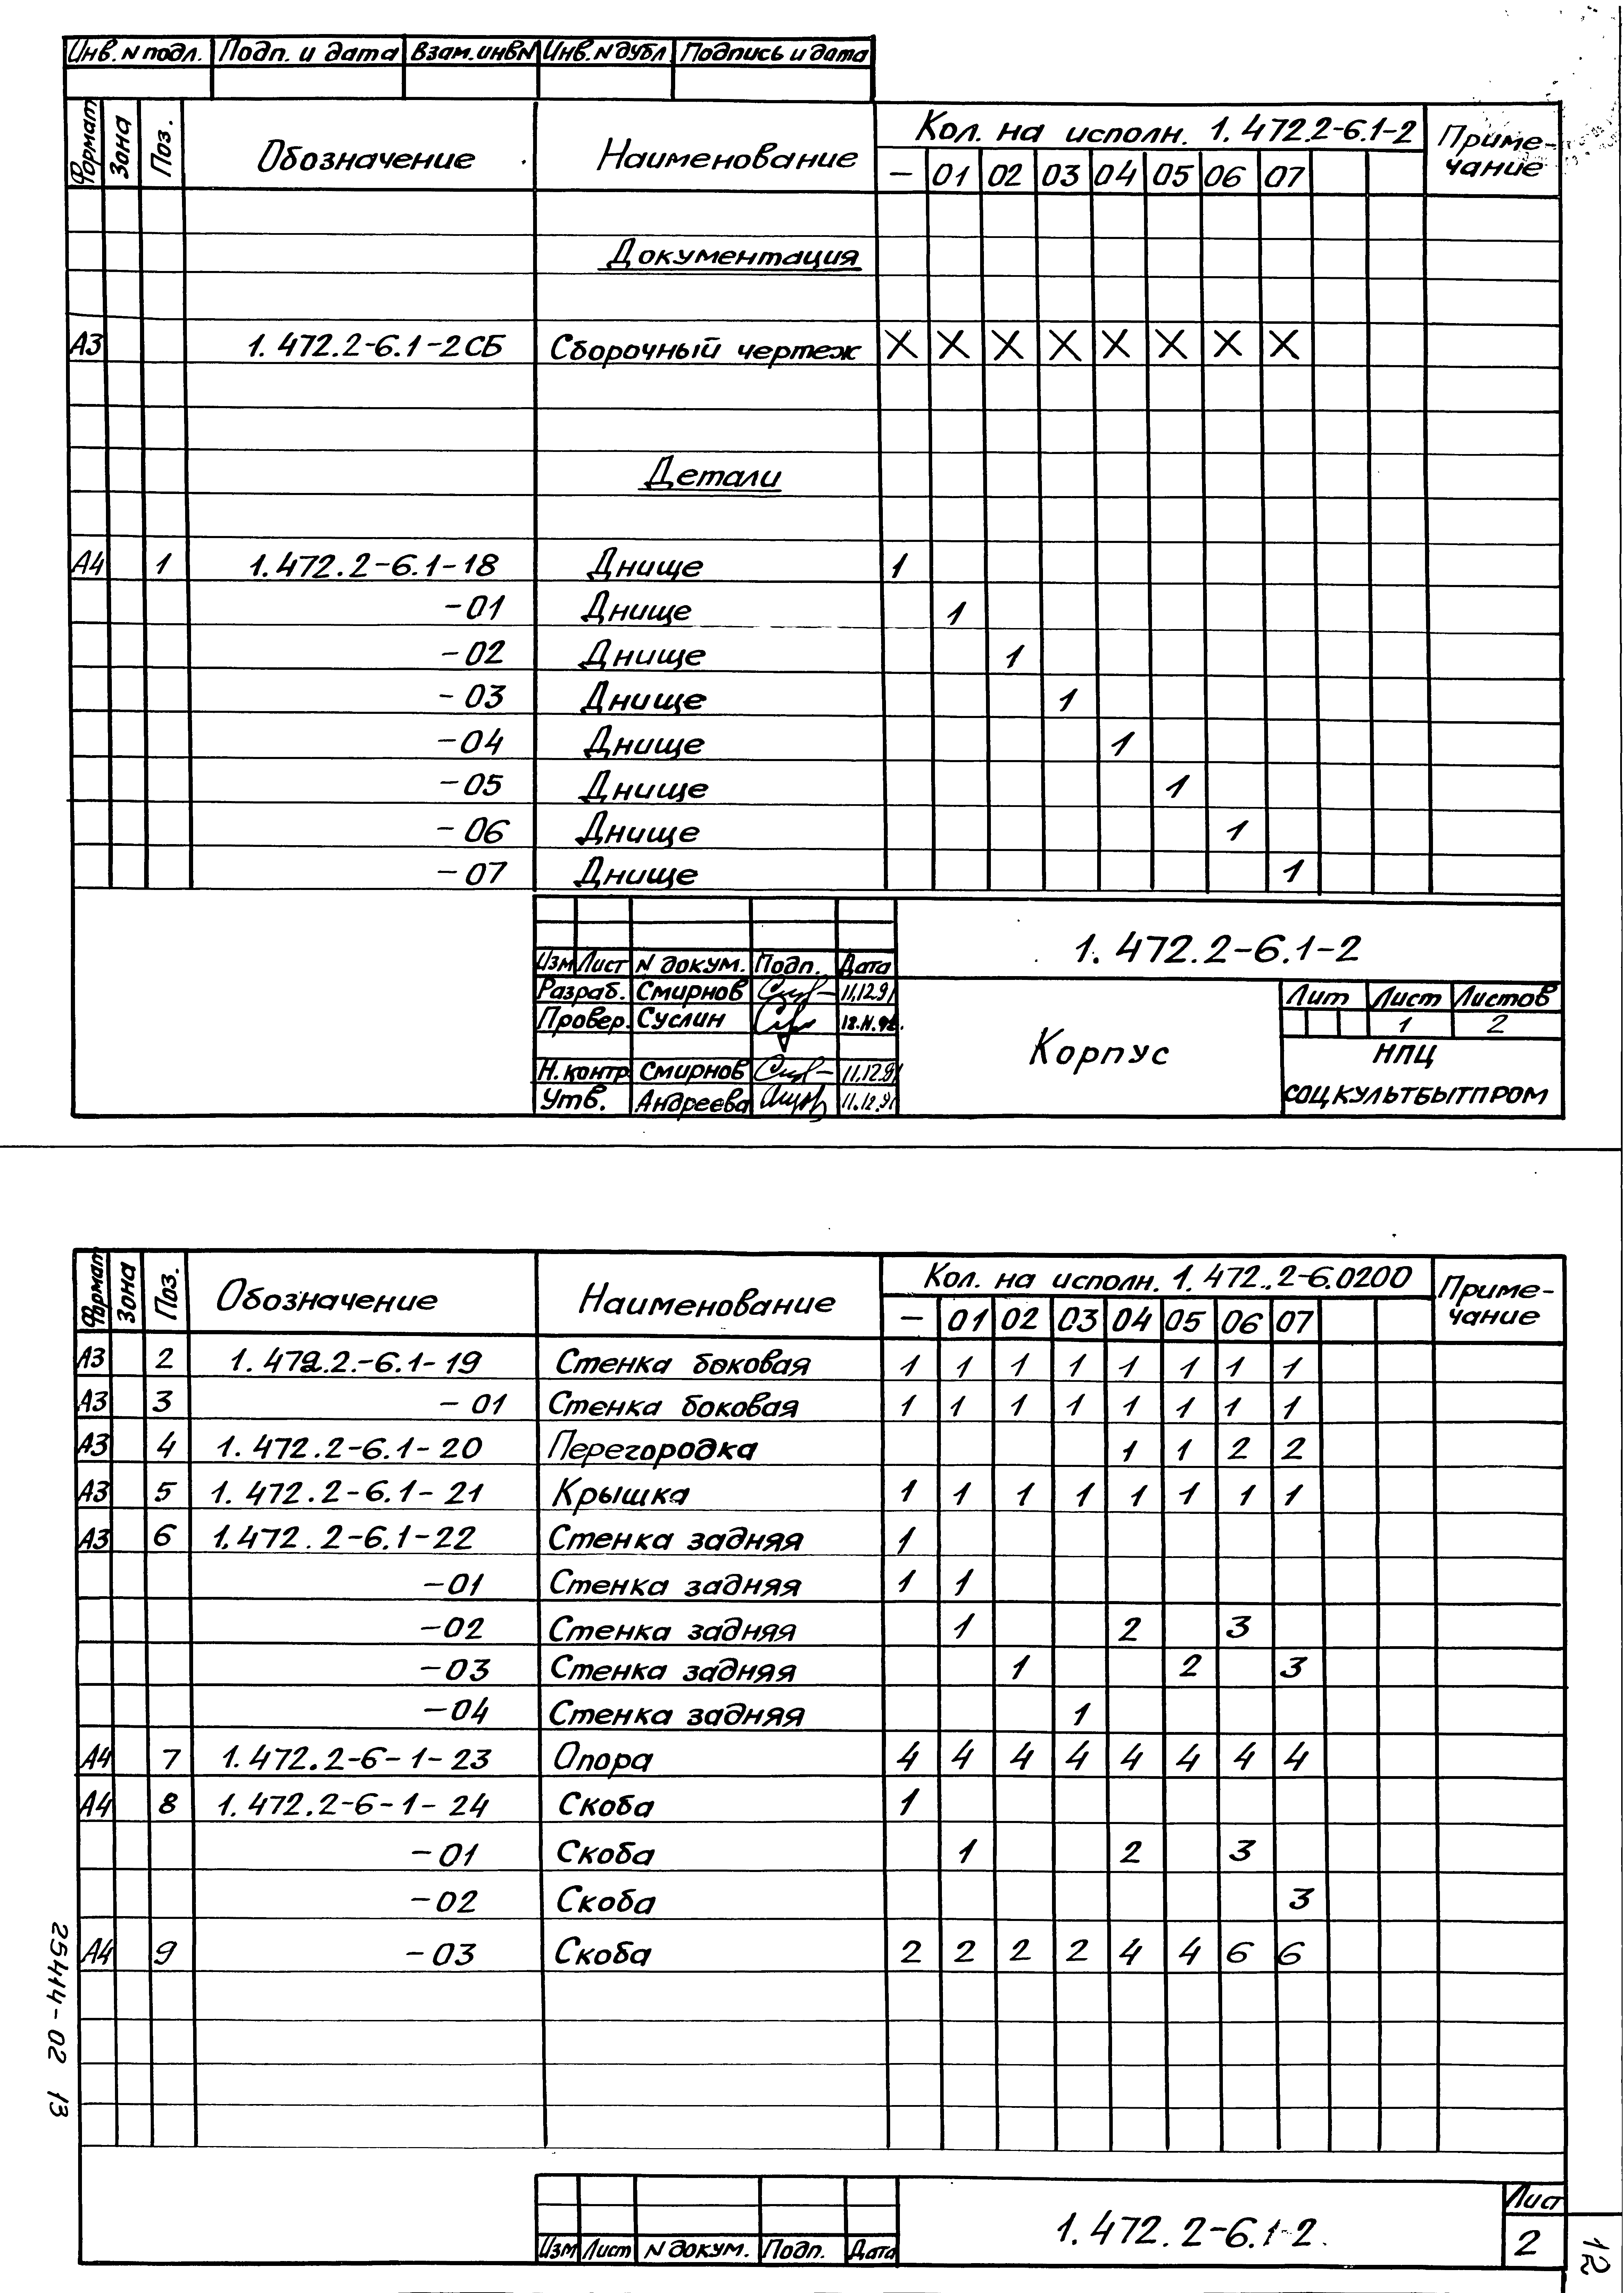 Инв. N подл. Подп. и дата Взам. инв N Инв. N дубл Подпись и дата
Формат Зона Поз. Обозначение Наименование Кол. на исполн. 1. 472.2-6.1-2 Приме-
чание
— 01 02 03 04 05 06 07
Документация
А3 1. 472.2-6.1-2СБ Сборочный чертеж X X X X X X X X
Детали
А4 1 1. 472.2-6.1-18 Днище 1
-01 Днище 1
-02 Днище 1
-03 Днище 1
-04 Днище 1
-05 Днище 1
-06 Днище 1
-07 Днище 1
1. 472.2-6.1-2
Изм Лист N докум. Подп. Дата
Разраб. Смирнов 11.12.91
Провер. Суслин
Н. контр Смирнов 11.12.91
Утв. Андреева 11.12.91
Корпус
Лит Лист Листов
1 2
НПЦ
СОЦКУЛЬТБЫТПРОМ
Формат Зона Поз. Обозначение Наименование Кол. на исполн. 1. 472..2-6.0200 Приме-
чание
— 01 02 03 04 05 06 07
А3 2 1. 472.2.-6.1-19 Стенка боковая 1 1 1 1 1 1 1 1
А3 3 - 01 Стенка боковая 1 1 1 1 1 1 1 1
А3 4 1. 472.2-6.1-20 Перегородка 1 1 2 2
А3 5 1. 472.2-6.1-21 Крышка 1 1 1 1 1 1 1 1
А3 6 1. 472. 2-6.1-22 Стенка задняя 1
-01 Стенка задняя 1 1
-02 Стенка задняя 1 2 3
-03 Стенка задняя 1 2 3
-04 Стенка задняя 1
А4 7 1. 472.2-6-1-23 Опора 4 4 4 4 4 4 4 4
А4 8 1. 472.2-6-1-24 Скоба 1
-01 Скоба 1 2 3
-02 Скоба 3
А4 9 -03 Скоба 2 2 2 2 4 4 6 6
25414-02 13
Изм Лист N докум. Подп. Дата
1. 472. 2-6.1-2.
Лист
2
12